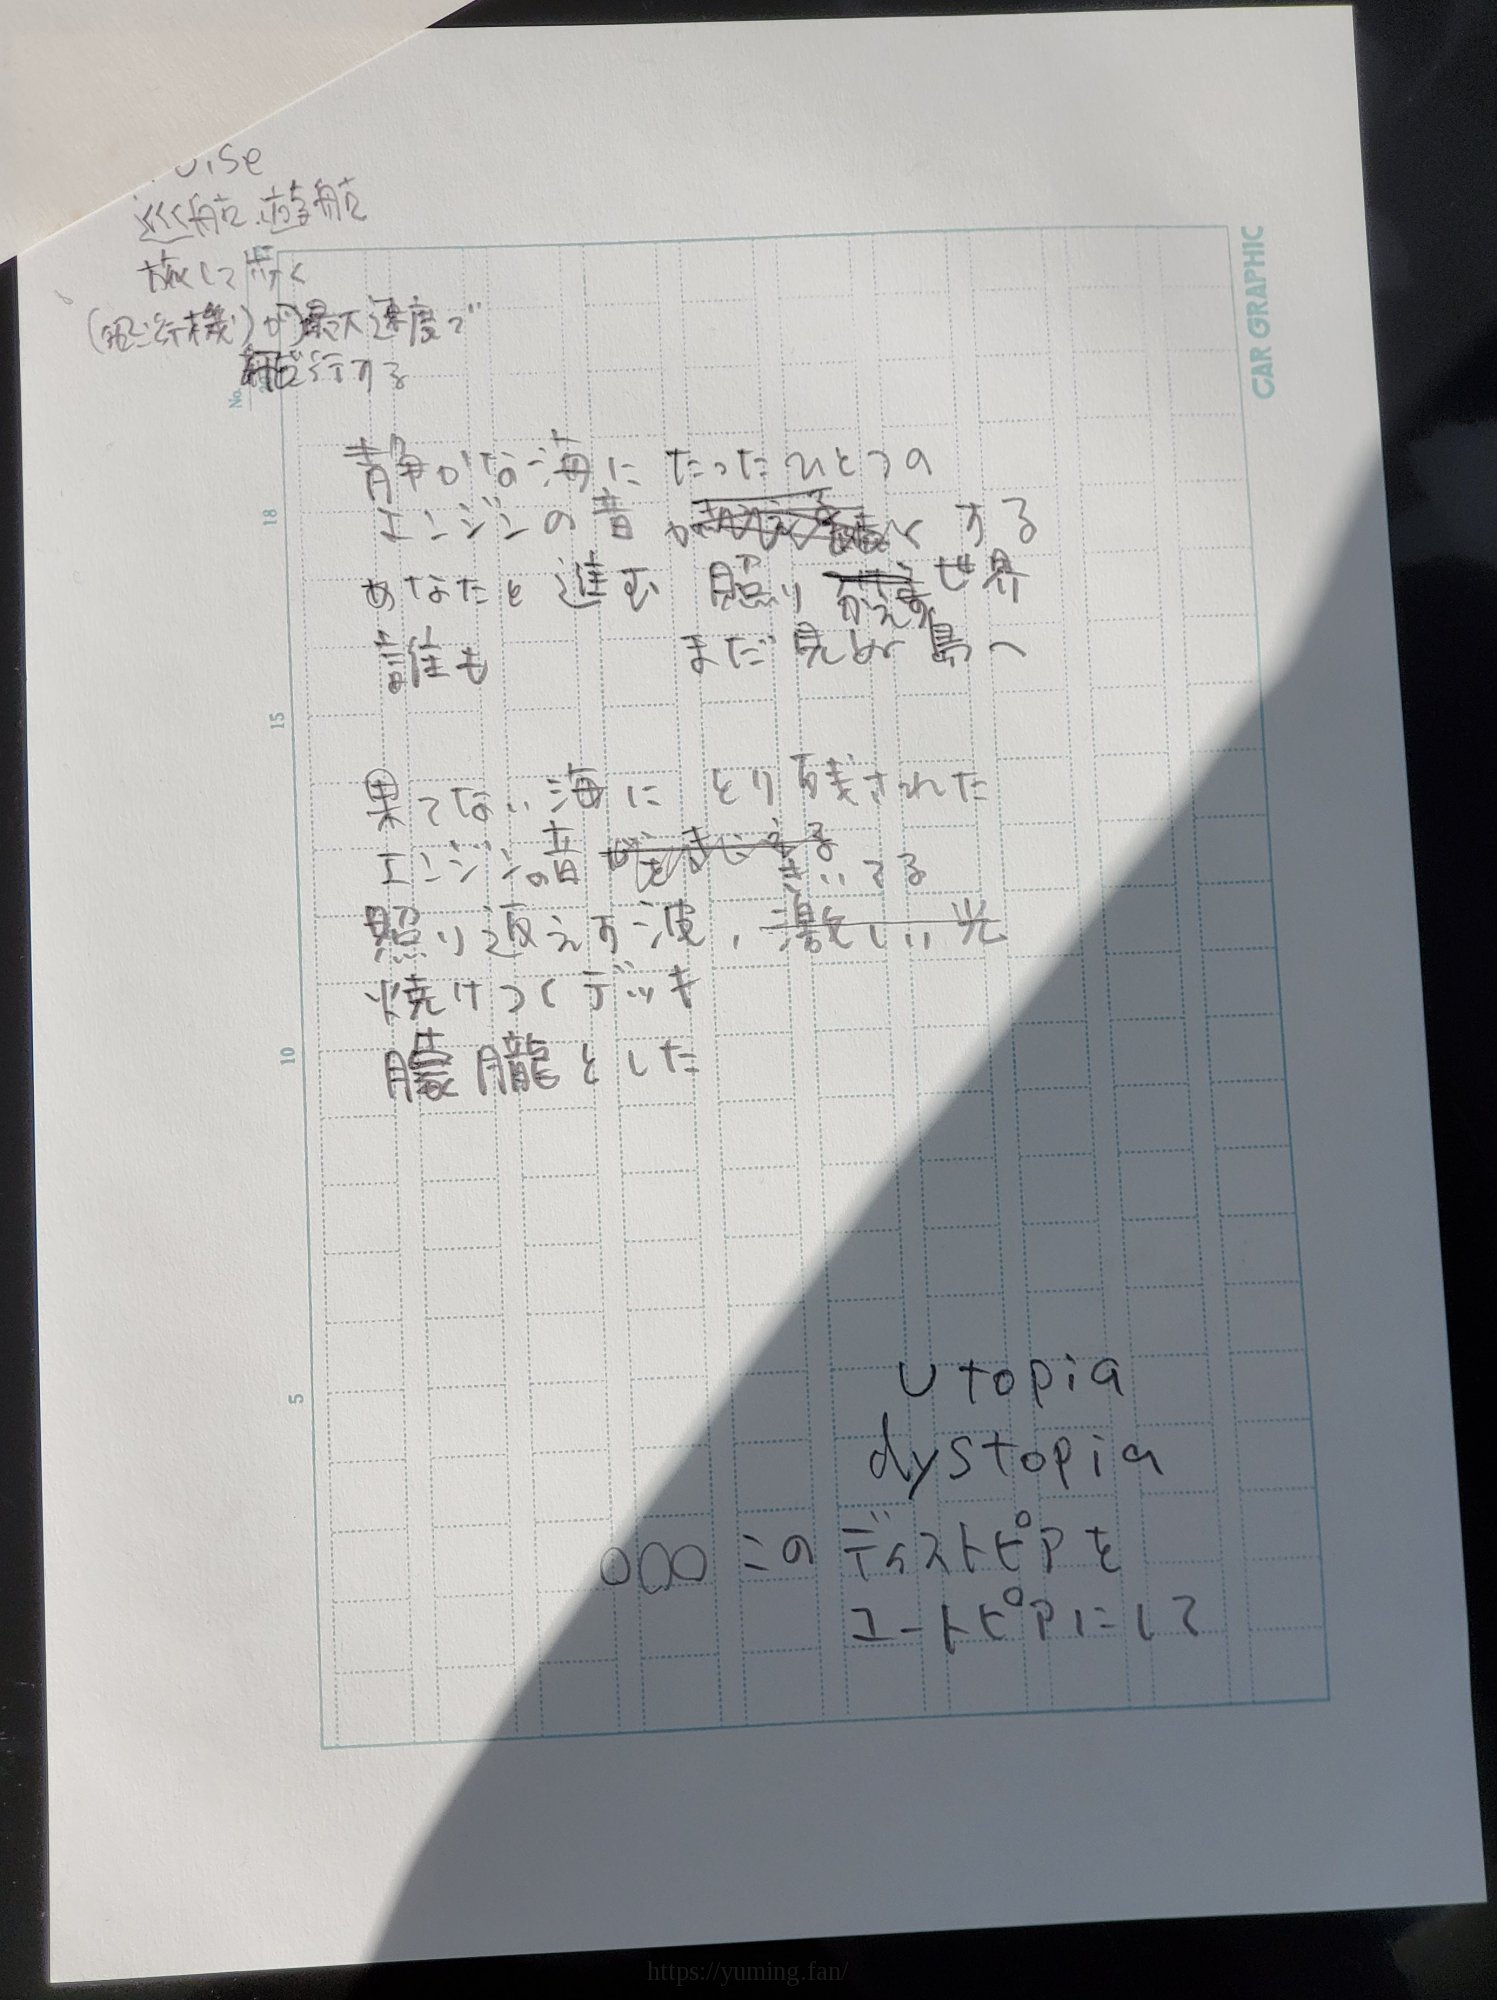 uise
巡航.遊航
旅して歩く
(飛行機)が最大速度で
航行する
CAR GRAPHIC
No.
静かな海に たったひとつの
18
エンジンの音が する
あなたと 進む 照りかえす 世界
誰も まだ見ぬ島へ
15
果てない海に とり残された
エンジンの音 を きいてる
照り返えす波、激しい光
焼けつくデッキ
10
朦朧とした
5
utopia
dystopia
○○○ このディストピアを
ユートピアにして
https://yuming.fan/